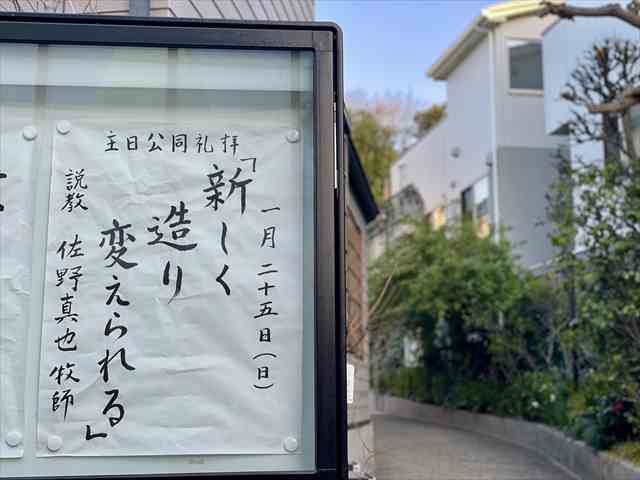 主日公同礼拝
一月二十五日(日)
「新しく
造り
変えられる」
説教 佐野真也牧師